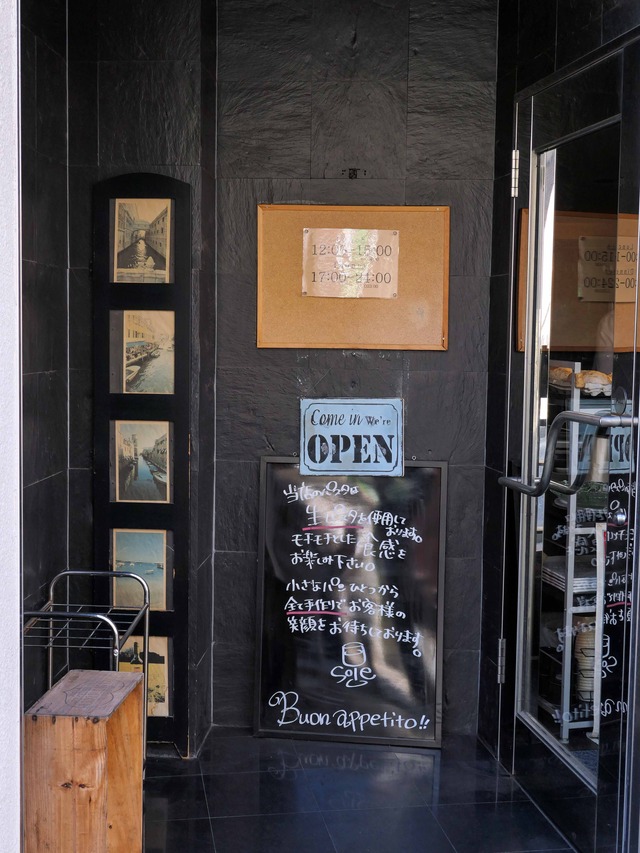 12:00-15:00
17:00-24:00
Come in We're
OPEN
当店のパスタは
生パスタを使用して
おります。
モチモチとした 食感を
お楽しみ下さい。
小さなパンひとつから
全て手作りでお客様の
笑顔をお待ちしております。
Sole
Buon appetito!!